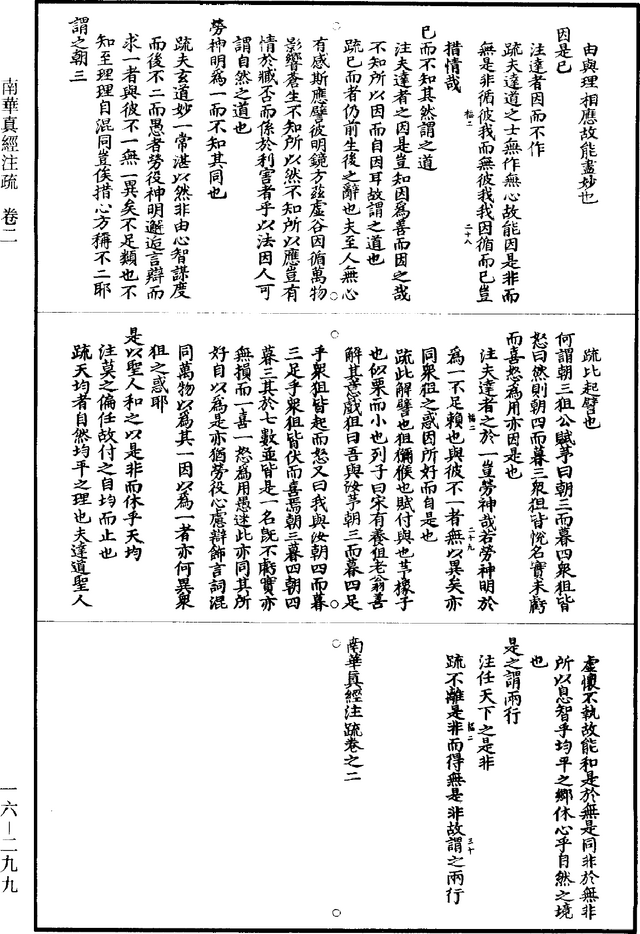 由與理相應故能盡妙也
因是已
注達者因而不作
疏夫達道之士無作無心故能因是非而
無是非循彼我而無彼我我因循而已豈
措情哉
已而不知其然謂之道
注夫達者之因是豈知因爲善而因之哉
不知所以因而自因耳故謂之道也
疏已而者仍前生後之辭也夫至人無心
有感斯應譬彼明鏡方茲虛谷因循萬物
影響蒼生不知所以然不知所以應豈有
情於臧否而係於利害者乎以法因人可
謂自然之道也
勞神明爲一而不知其同也
疏夫玄道妙一常湛以然非由心智謀度
而後不二而愚者勞役神明邂逅言辯而
求一者與彼不一無一異矣不足類也不
知至理理自混同豈俟措心方稱不二耶
謂之朝三
疏此起譬也
何謂朝三狙公賦芧曰朝三而暮四衆狙皆
怒曰然則朝四而暮三衆狙皆悅名實未虧
而喜怒爲用亦因是也
注夫達者之於一豈勞神哉若勞神明於
爲一不足賴也與彼不一者無以異矣亦
同衆狙之惑因所好而自是也
疏此解譬也狙獼猴也賦付與也芧橡子
也似栗而小也列子曰宋有養狙老翁善
解其意戲狙曰吾與汝芧朝三而暮四足
乎衆狙皆起而怒又曰我與汝朝四而暮
三足乎衆狙皆伏而喜焉朝三暮四朝四
暮三其於七數並皆是一名旣不虧實亦
無損而一喜一怒爲用愚迷此亦同其所
好自以爲是亦猶勞役心慮辯飾言詞混
同萬物以爲其一因以爲一者亦何異衆
狙之惑耶
是以聖人和之以是非而休乎天均
注莫之偏任故付之自均而止也
疏天均者自然均平之理也夫達道聖人
虛懷不執故能和是於無是同非於無非
所以息智乎均平之鄉休心乎自然之境
也
是之謂兩行
注任天下之是非
疏不離是非而得無是非故謂之兩行
南華真經注疏卷之二
二十八
二十九
三十
南華真經注疏 卷二
一六—二九九